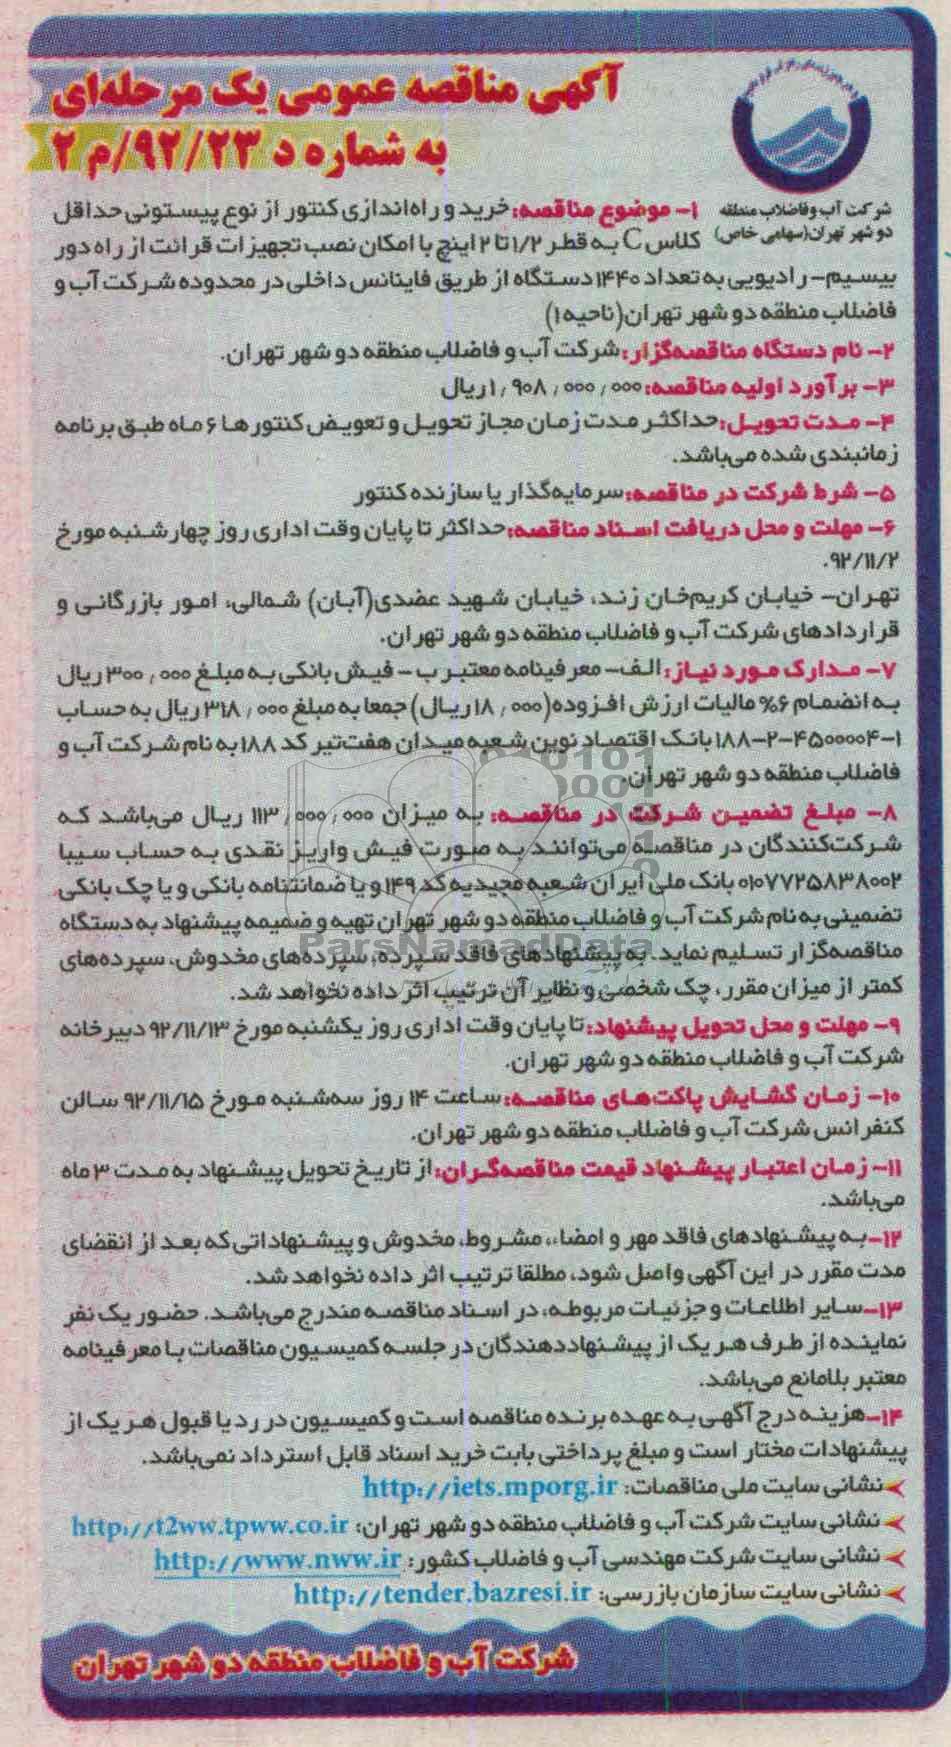 آگهی مناقصه عمومی یک مرحله‌ای
به شماره د ۹۲/۲۳/م ۲
شرکت آب و فاضلاب منطقه
دو شهر تهران (سهامی خاص)
۱- موضوع مناقصه: خرید و راه‌اندازی کنتور از نوع پیستونی حداقل
کلاس C به قطر ۱/۲ تا ۲ اینچ با امکان نصب تجهیزات قرائت از راه دور
بیسیم- رادیویی به تعداد ۱۴۴۰ دستگاه از طریق فاینانس داخلی در محدوده شرکت آب و
فاضلاب منطقه دو شهر تهران (ناحیه ۱)
۲- نام دستگاه مناقصه‌گزار: شرکت آب و فاضلاب منطقه دو شهر تهران.
۳- برآورد اولیه مناقصه: ۱,۹۰۸,۰۰۰,۰۰۰ ریال
۴- مدت تحویل: حداکثر مدت زمان مجاز تحویل و تعویض کنتورها ۶ ماه طبق برنامه
زمانبندی شده می‌باشد.
۵- شرط شرکت در مناقصه: سرمایه‌گذار یا سازنده کنتور
۶- مهلت و محل دریافت اسناد مناقصه: حداکثر تا پایان وقت اداری روز چهارشنبه مورخ
۹۲/۱۱/۲.
تهران- خیابان کریم‌خان زند، خیابان شهید عضدی (آبان) شمالی، امور بازرگانی و
قراردادهای شرکت آب و فاضلاب منطقه دو شهر تهران.
۷- مدارک مورد نیاز: الف- معرفینامه معتبر ب - فیش بانکی به مبلغ ۳۰۰,۰۰۰ ریال
به انضمام ۶% مالیات ارزش افزوده (۱۸,۰۰۰ ریال) جمعا به مبلغ ۳۱۸,۰۰۰ ریال به حساب
۱-۴۵۰۰۰۰۴-۲-۱۸۸ بانک اقتصاد نوین شعبه میدان هفت‌تیر کد ۱۸۸ به نام شرکت آب و
فاضلاب منطقه دو شهر تهران.
۸- مبلغ تضمین شرکت در مناقصه: به میزان ۱۱۳,۰۰۰,۰۰۰ ریال می‌باشد که
شرکت‌کنندگان در مناقصه می‌توانند به صورت فیش واریز نقدی به حساب سیبا
۰۱۰۷۷۲۵۸۳۸۰۰۲ بانک ملی ایران شعبه مجیدیه کد ۱۴۹ و یا ضمانتنامه بانکی و یا چک بانکی
تضمینی به نام شرکت آب و فاضلاب منطقه دو شهر تهران تهیه و ضمیمه پیشنهاد به دستگاه
مناقصه‌گزار تسلیم نماید. به پیشنهادهای فاقد سپرده، سپرده‌های مخدوش، سپرده‌های
کمتر از میزان مقرر، چک شخصی و نظایر آن ترتیب اثر داده نخواهد شد.
ParsNamadData
۹- مهلت و محل تحویل پیشنهاد: تا پایان وقت اداری روز یکشنبه مورخ ۹۲/۱۱/۱۳ دبیرخانه
شرکت آب و فاضلاب منطقه دو شهر تهران.
۱۰- زمان گشایش پاکت‌های مناقصه: ساعت ۱۴ روز سه‌شنبه مورخ ۹۲/۱۱/۱۵ سالن
کنفرانس شرکت آب و فاضلاب منطقه دو شهر تهران.
۱۱- زمان اعتبار پیشنهاد قیمت مناقصه‌گران: از تاریخ تحویل پیشنهاد به مدت ۳ ماه
می‌باشد.
۱۲- به پیشنهادهای فاقد مهر و امضاء، مشروط، مخدوش و پیشنهاداتی که بعد از انقضای
مدت مقرر در این آگهی واصل شود، مطلقا ترتیب اثر داده نخواهد شد.
۱۳- سایر اطلاعات و جزئیات مربوطه، در اسناد مناقصه مندرج می‌باشد. حضور یک نفر
نماینده از طرف هر یک از پیشنهاددهندگان در جلسه کمیسیون مناقصات با معرفینامه
معتبر بلامانع می‌باشد.
۱۴- هزینه درج آگهی به عهده برنده مناقصه است و کمیسیون در رد یا قبول هر یک از
پیشنهادات مختار است و مبلغ پرداختی بابت خرید اسناد قابل استرداد نمی‌باشد.
نشانی سایت ملی مناقصات: http://iets.mporg.ir
نشانی سایت شرکت آب و فاضلاب منطقه دو شهر تهران: http://t2ww.tpww.co.ir
نشانی سایت شرکت مهندسی آب و فاضلاب کشور: http://www.nww.ir
نشانی سایت سازمان بازرسی: http://tender.bazresi.ir
شرکت آب و فاضلاب منطقه دو شهر تهران